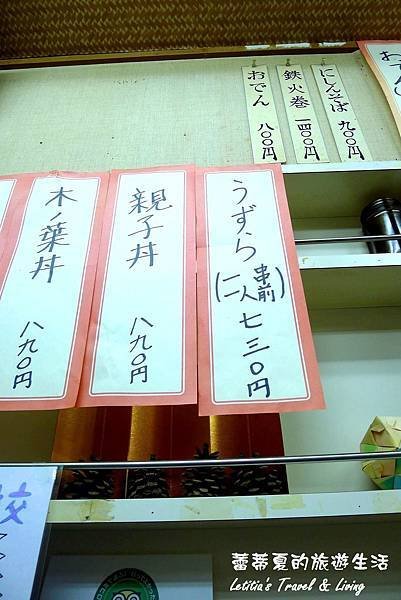 にしんそば 九〇〇円
鉄火巻 一四〇〇円
おでん 八〇〇円
うずら
(二人串前)
七三〇円
親子丼 八九〇円
木ノ葉丼 八九〇円
蕾蒂夏的旅遊生活
Letitia's Travel & Living